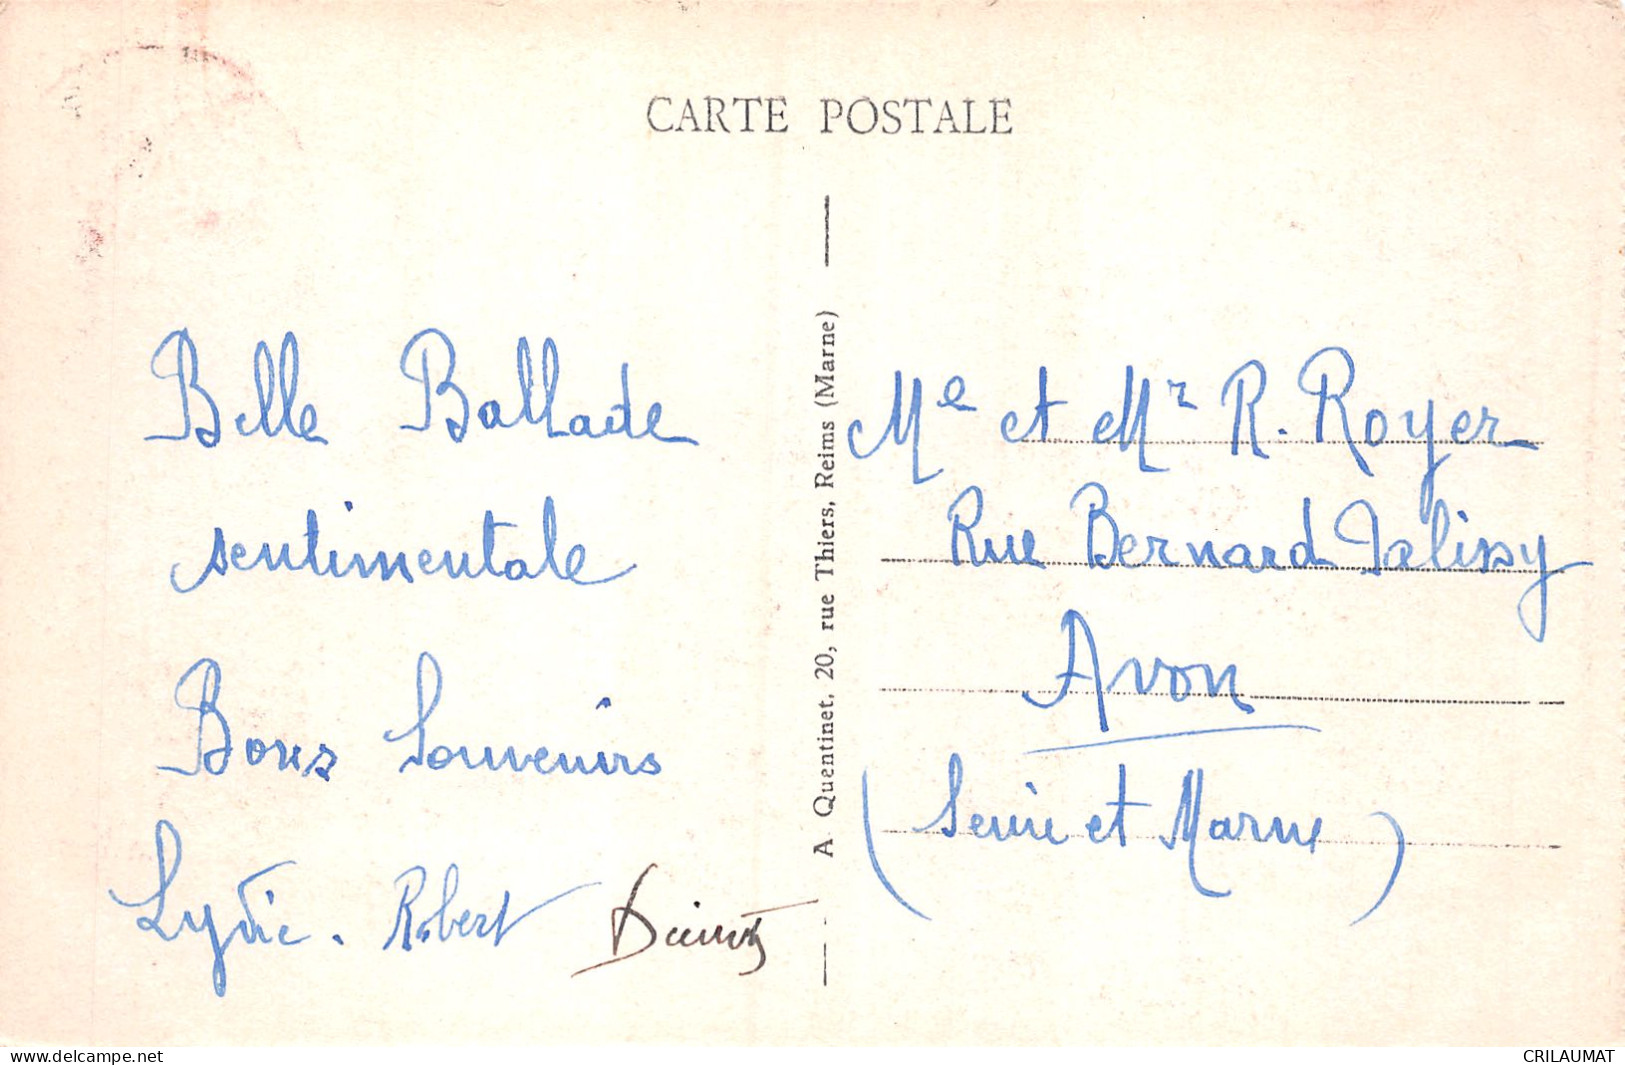 CARTE POSTALE
Belle Ballade
sentimentale
Bons Souvenirs
Lydie. Robert
A Quentinet, 20, rue Thiers, Reims (Marne)
Me et Mr R. Royer
Rue Bernard Palissy
Avon
(Seine et Marne)
delcampe.net
CRILAUMAT